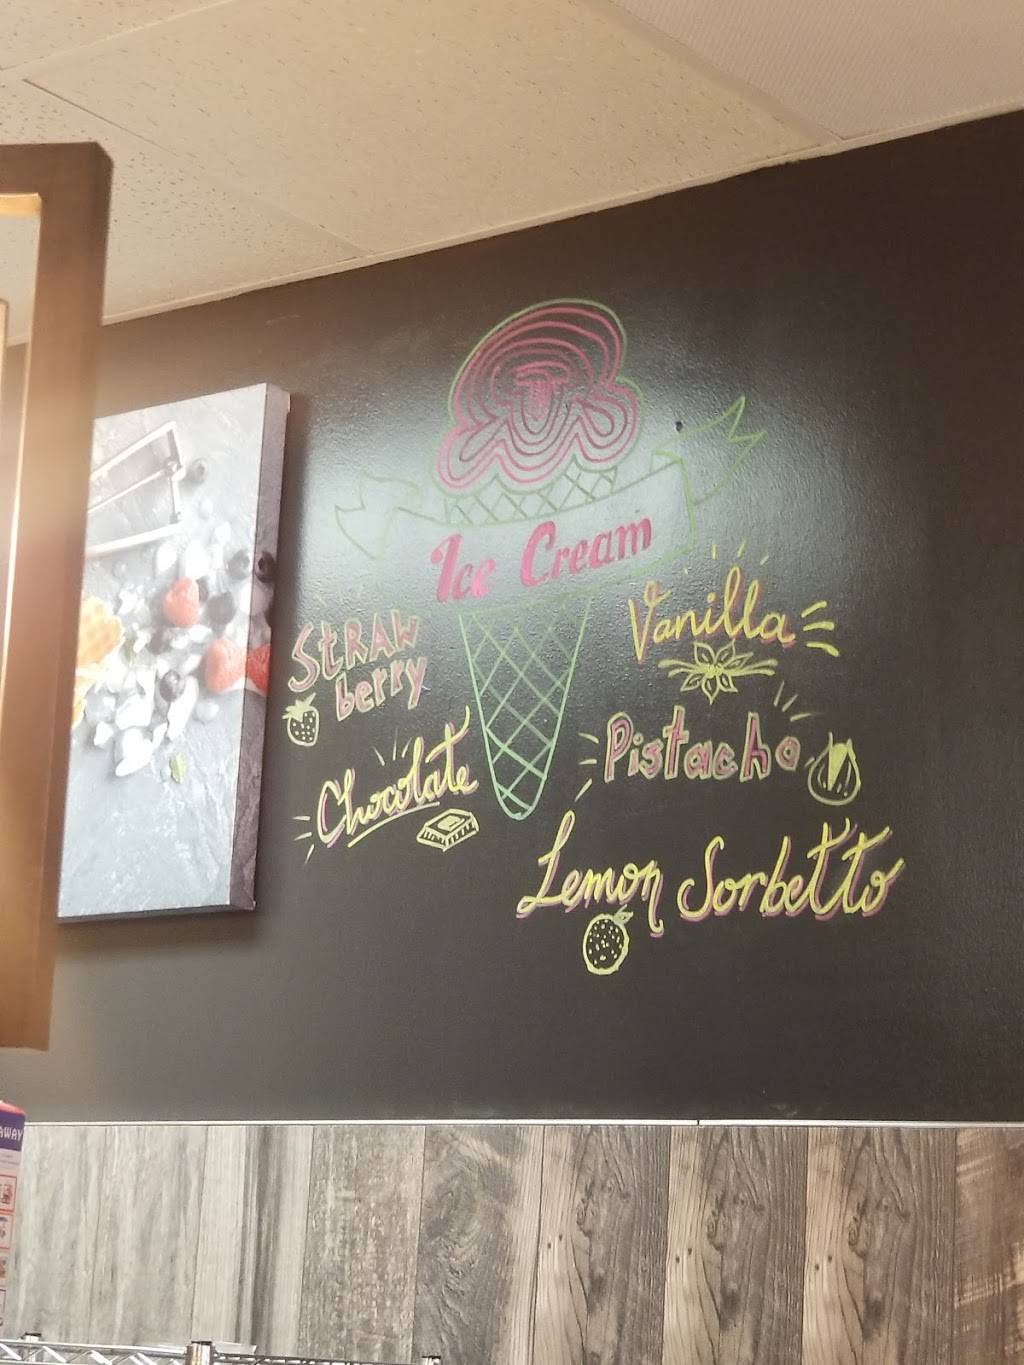 Ice Cream
Straw
berry
Chocolate
Vanilla
Pistacho
Lemon Sorbetto
AWAY